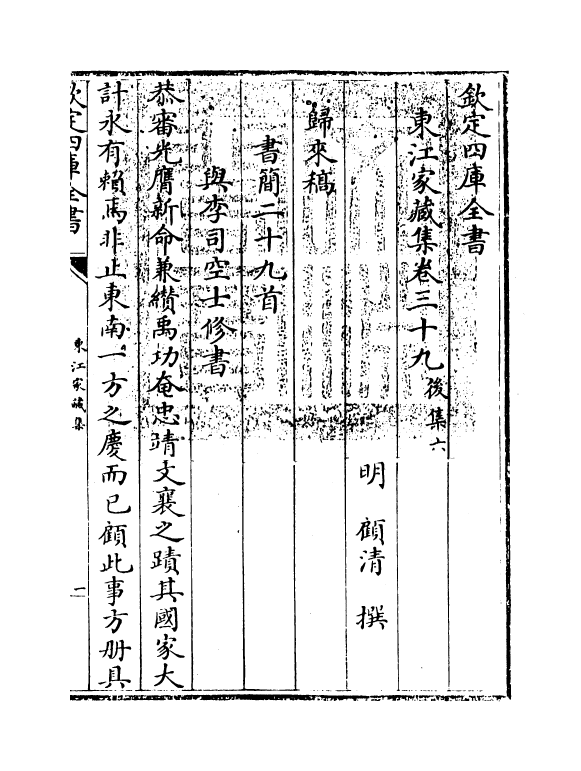 欽定四庫全書
東江家藏集卷三十九後集六
明 顧清 撰
歸來稿
書簡二十九首
與李司空士修書
恭審光膺新命兼纘禹功奄忠靖文襄之蹟其國家大
計永有賴焉非止東南一方之慶而已顧此事方册具
欽定四庫全書
東江家藏集
一